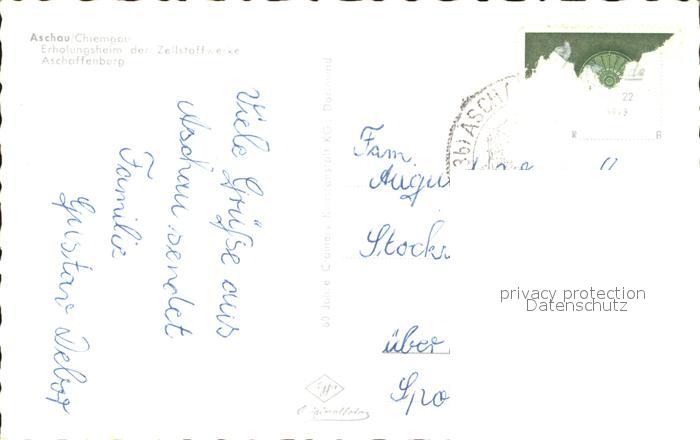 Aschau/Chiemgau
Erholungsheim der Zellstoffwerke
Aschaffenburg
Viele Grüße aus
Aschau sendet
Familie
Gustav
60 Jahre Cramers Kunstanstalt KG. Dortmund
Originalfoto
ASCHA
22
Fam.
Augu
Stock
über
Spo
privacy protection
Datenschutz